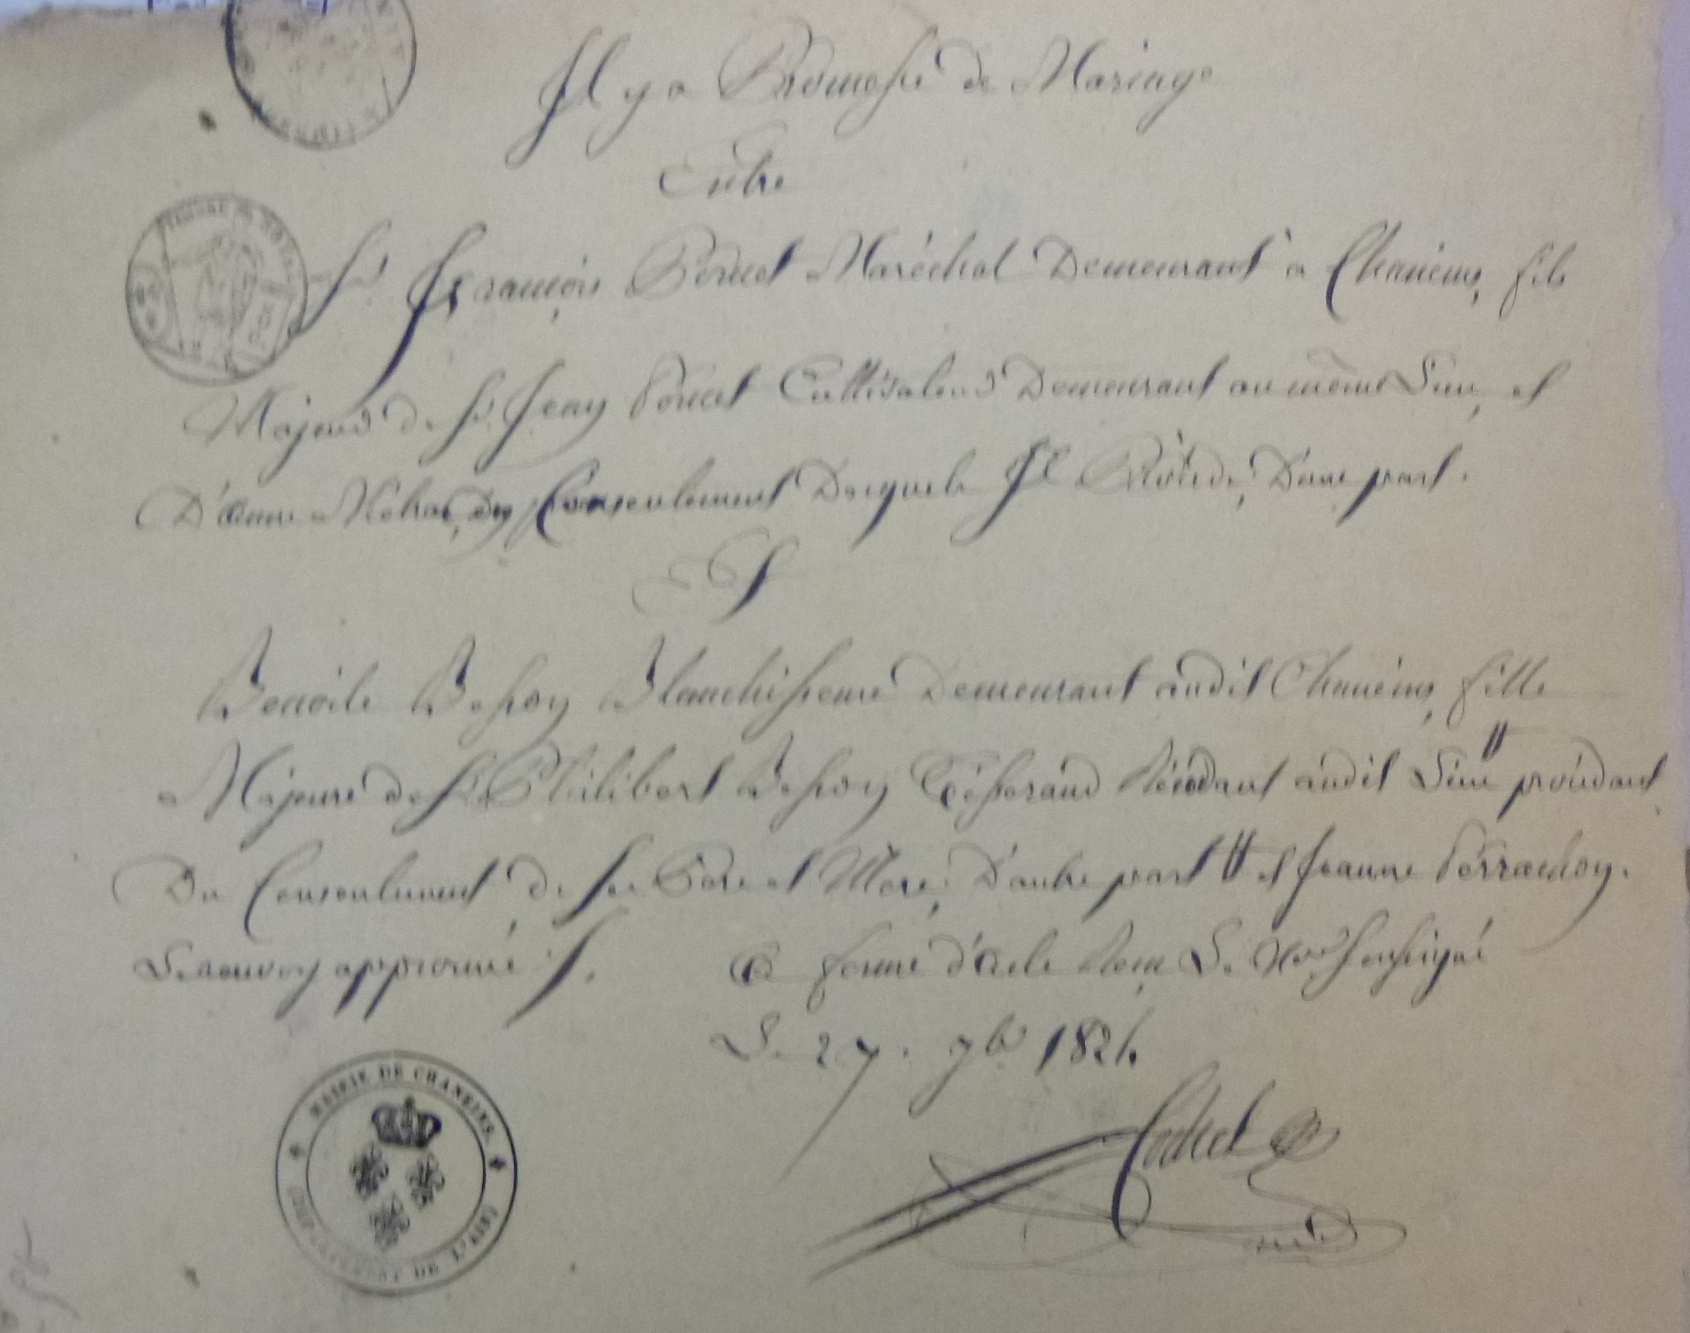 Il y a Promesse de Mariage
Entre
Sr. François Poncet Maréchal Demeurant à Chaneins, fils
Majeur de Sr. Jean Poncet Cultivateur Demeurant au même Lieu, et
D'anne Du Consentement Desquels Il Procède, D'une part.
Et
Benoite Besson Blanchisseuse Demeurant audit Chaneins, fille
Majeure de Sr. Philibert Besson Tisserand Résidant audit Lieu procédant
Du Consentement de ses Père et Mère, D'autre part et Jeanne Perrachon.
Le renvoy approuvé
forme d'acte Le Mre soussigné
Le 27. 9bre 1824
MAIRIE DE CHANEINS
DEPARTEMENT DE L'AIN